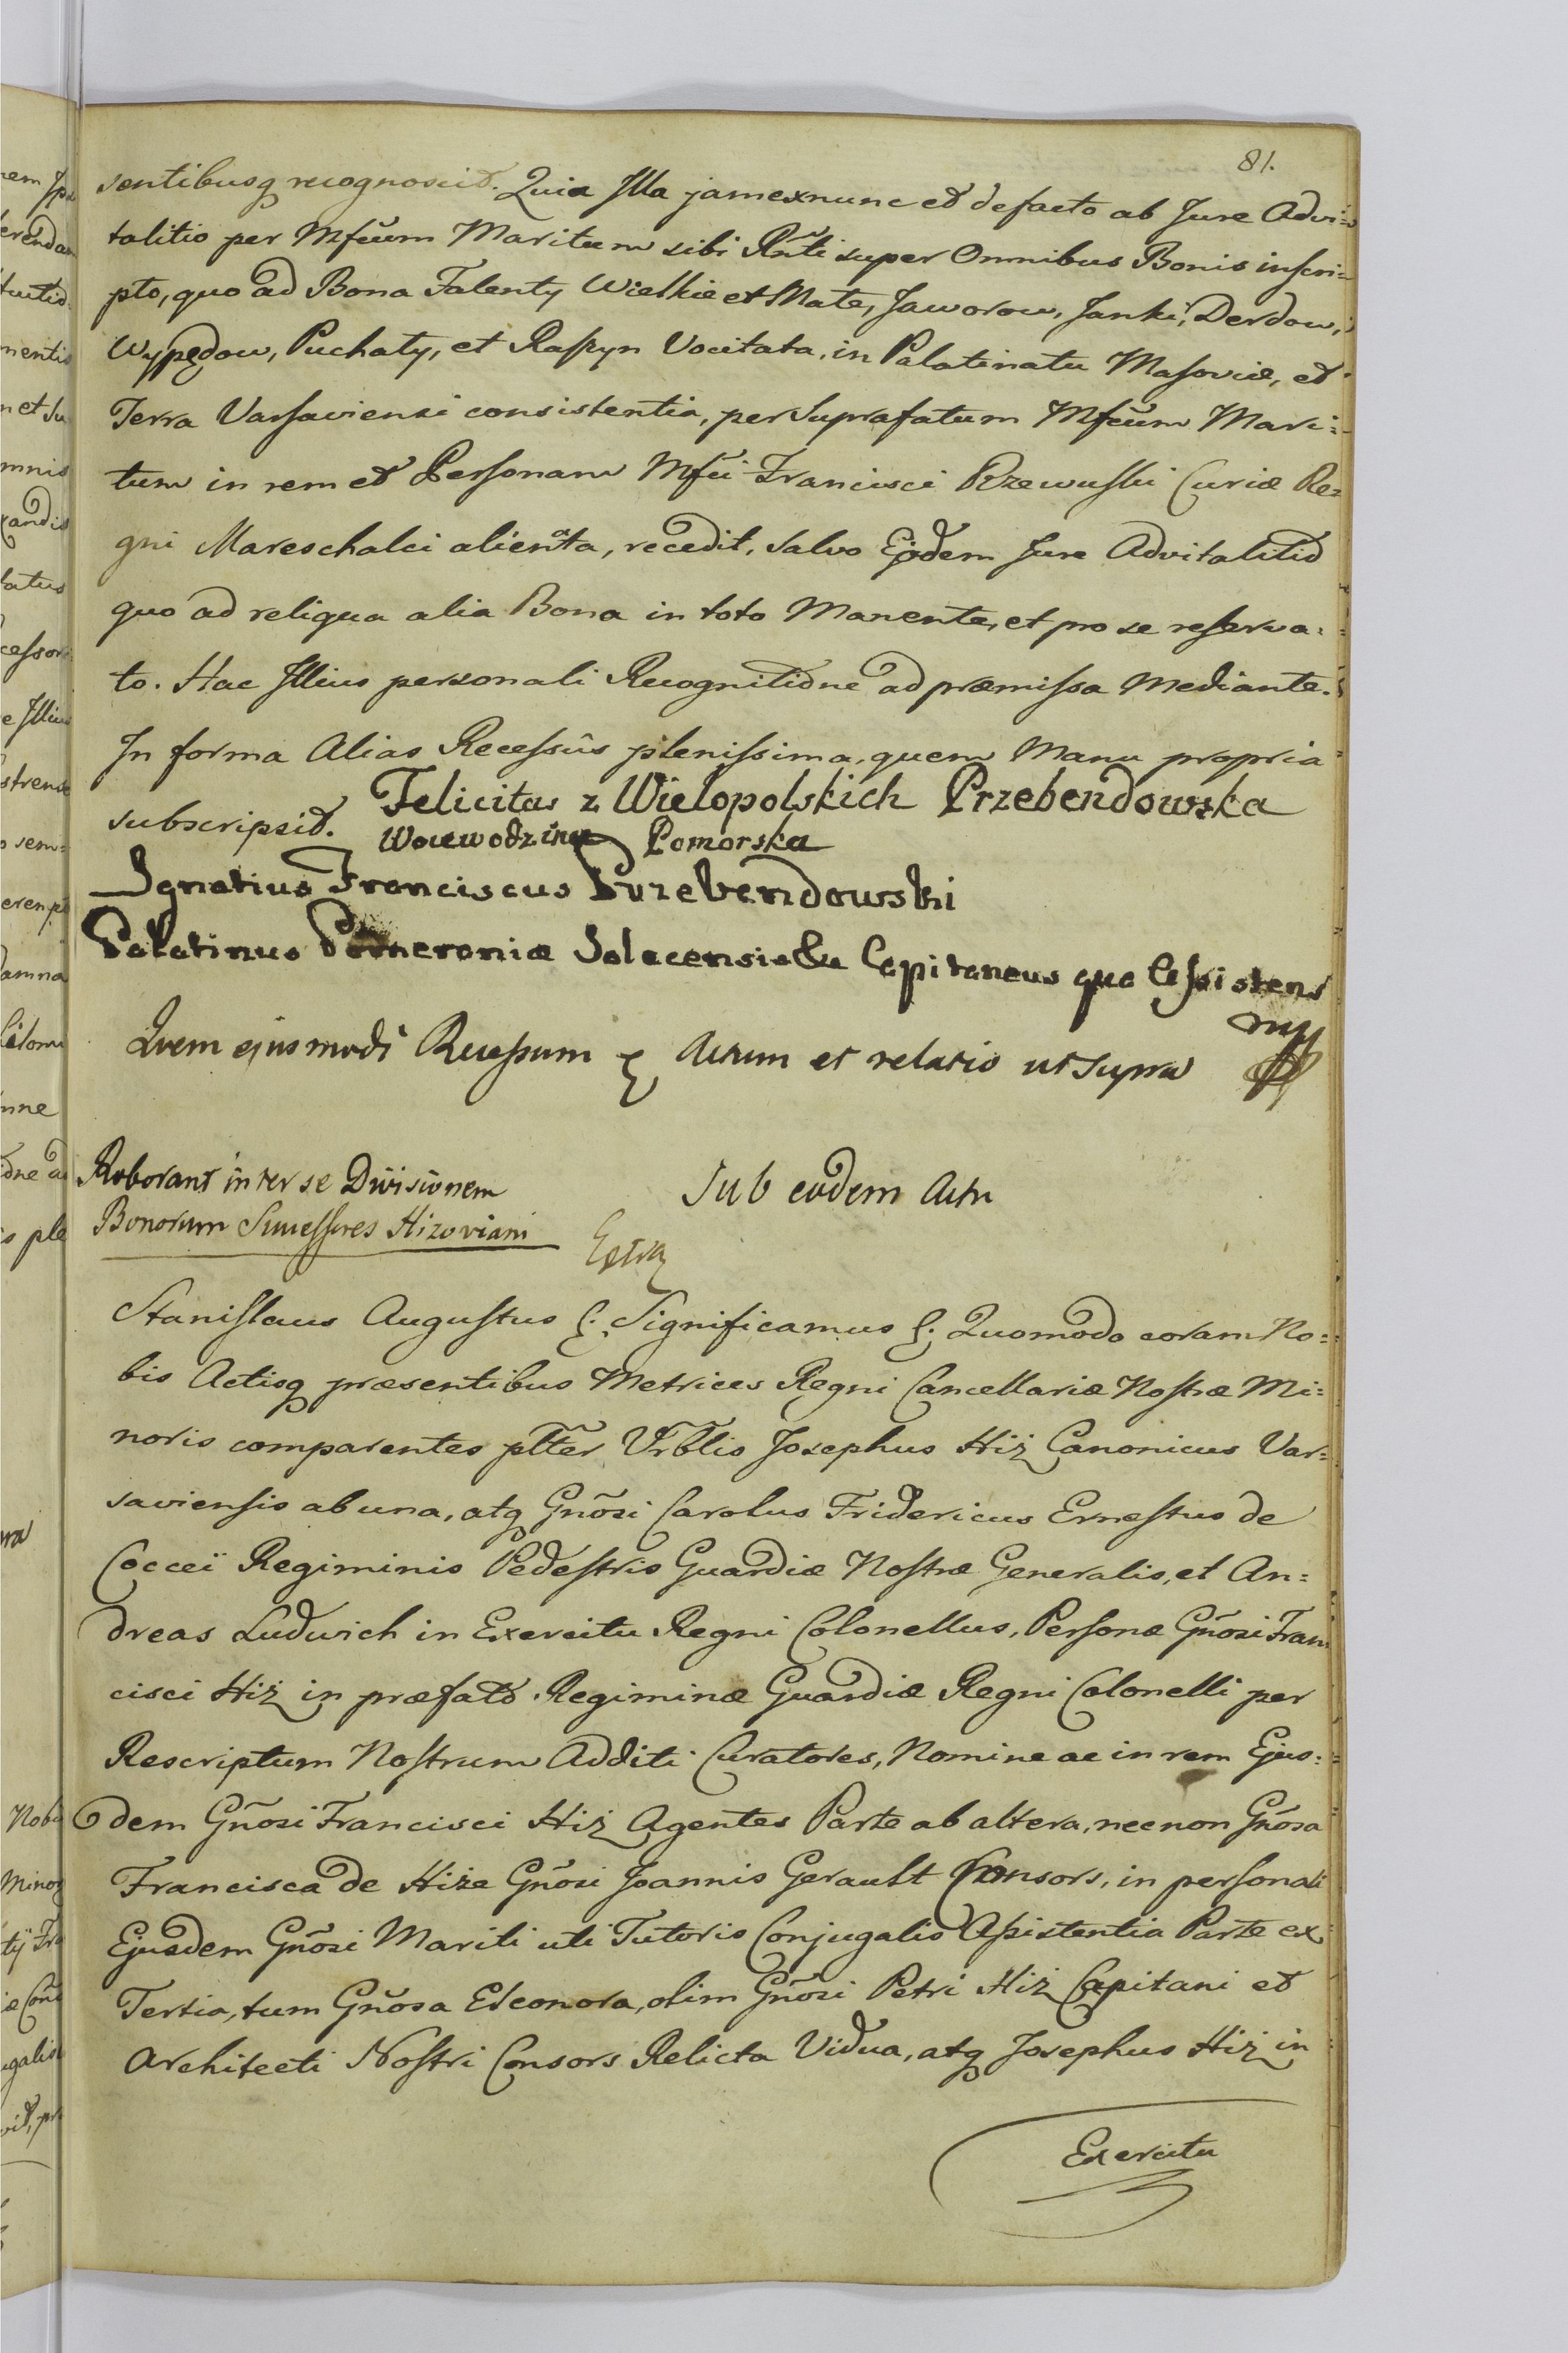 81.
sentibusq recognoscit. Quia Illa jamexnunc et defacto ab Jure Advi=
talitio per Mfcum Maritum sibi Rnti super Omnibus Bonis inscri=
pto, quo ad Bona Falenty Wielkie et Małe, Jaworow, Janki, Derdow,
Wypędow, Puchaty, et Raszyn Vocitata, in Palatinatu Masoviæ, et
Terra Varsaviensi consistentia, per Suprafatum Mfcum Mari=
tum in rem et Personam Mfci Francisci Rzewuski Curiæ Re=
gni Mareschalci alienata, recedit, salvo Ejodem Jure Advitalitio
quo ad reliqua alia Bona in toto Manente, et pro se reserva=
to. Hac Illius personali Recognitione ad præmissa Mediante.
In forma Alias Recessûs plenissima, quem Manu propria
subscripsit. Felicitas z Wielopolskich Przebendowska
Woiewodzina Pomorska
Ignatius Franciscus Przebendowski
Palatinus Pomeraniæ Solecensis &c Capitaneus qua Assistens
mp
Quem ejusmodi Recessum Actum et relatio ut supra
Roborant inter se Divisionem
Bonorum Successores Hizoviani
Sub eodem Actu
Extra
Stanislaus Augustus &. Significamus &. Quomodo coram No=
bis Actisq præsentibus Metrices Regni Cancellariæ Nostræ Mi=
noris comparentes plter Vrblis Josephus Hiż Canonicus Var=
saviensis ab una, atq Gnosi Carolus Fridericus Ernestus de
Cocceï Regiminis Pedestris Guardiæ Nostræ Generalis, et An=
dreas Ludwich in Exercitu Regni Colonellus, Personæ Gnosi Fran
cisci Hiż in præfato Regimine Guardiæ Regni Colonelli per
Rescriptum Nostrum Additi Curatores, Nomine ac in rem Ejus=
dem Gnosi Francisci Hiż Agentes Parte ab altera, necnon Gnosa
Francisca de Hiże Gnosi Joannis Gerault Consors, in personali
Ejusdem Gnosi Mariti uti Tutoris Conjugalis Assistentia Parte ex
Tertia, tum Gnosa Eleonora, olim Gnosi Petri Hiż Capitani et
Architecti Nostri Consors Relicta Vidua, atq Josephus Hiż in
Exercitu